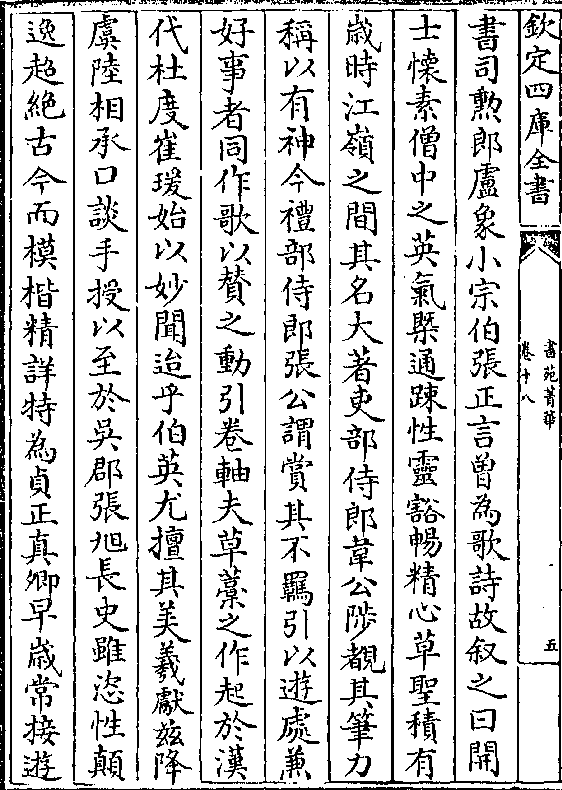 欽定四庫全書
書苑菁華
卷十八
五
書司勲郎盧象小宗伯張正言曾為歌詩故叙之曰開
士懷素僧中之英氣槩通踈性靈豁暢精心草聖積有
歳時江嶺之間其名大著吏部侍郎韋公陟覩其筆力
稱以有神今禮部侍郎張公謂賞其不羈引以遊處兼
好事者同作歌以賛之動引卷軸夫草藁之作起於漢
代杜度崔瑗始以妙聞迨乎伯英尤擅其美羲獻兹降
虞陸相承口談手授以至於吳郡張旭長史雖恣性顛
逸超絶古今而模楷精詳特為貞正真卿早歳常接遊